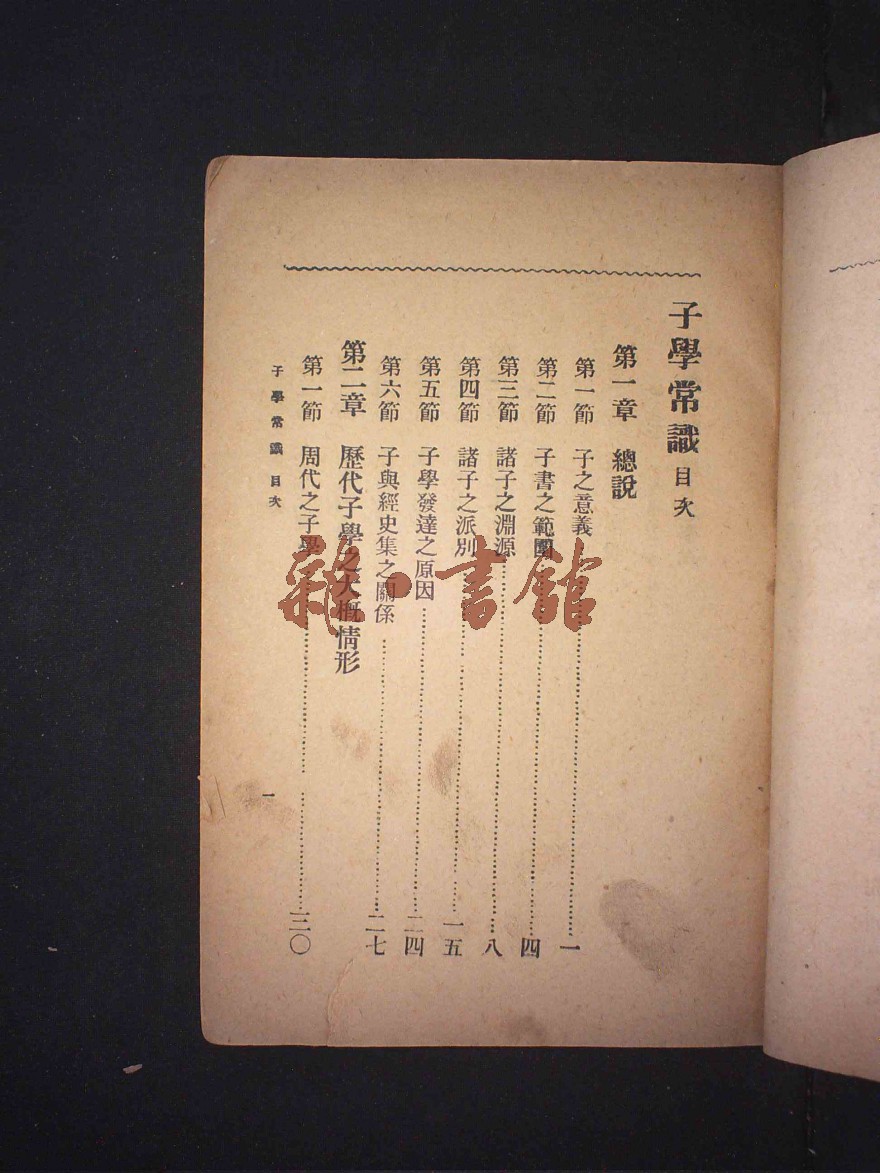 子學常識 目次
第一章 總說
第一節 子之意義……一
第二節 子書之範圍……四
第三節 諸子之淵源……八
第四節 諸子之派別……一五
第五節 子學發達之原因……二四
第六節 子與經史集之關係……二七
第二章 歷代子學之大概情形
第一節 周代之子學……三〇
子學常識 目次
一
雜·書館